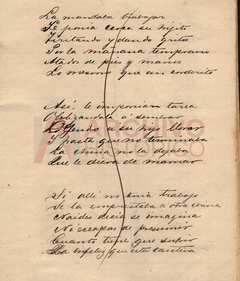 La mandaba trabajar
Le ponia cerca su hijito
Tiritando y dando gritos
Por la mañana temprano
Atado de pies y manos
Lo mesmo que un corderito
Asi le imponian tarea
Obligandola a sembrar
Oyendo a su hijo llorar
Y hasta que no terminaba
La china no la dejaba
Que le diera de mamar
Si alli no tenia trabajo
Se la emprestaba a otra china
Naides decia se imagina
Ni es capaz de presumir
Cuanto tiene que sufrir
La infeliz que está cautiva
ARCHIVO